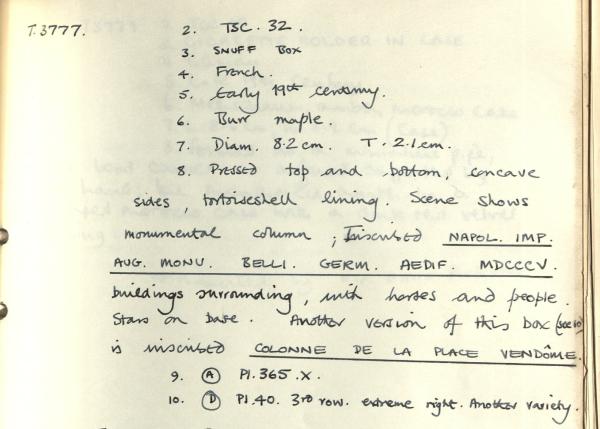 T.3777. 2. TSC. 32.
3. SNUFF BOX
4. French.
5. Early 19th century.
6. Burr maple.
7. Diam. 8.2cm. T. 2.1cm.
8. Pressed top and bottom, concave
sides, tortoiseshell lining. Scene shows
monumental column; Inscribed NAPOL. IMP.
AUG. MONU. BELLI. GERM. AEDIF. MDCCCV.
buildings surrounding, with horses and people.
Stars on base. Another version of this box (see 10)
is inscribed COLONNE DE LA PLACE VENDÔME.
9. (A) Pl. 365. x.
10. (D) Pl. 40. 3rd row. extreme right. Another variety.